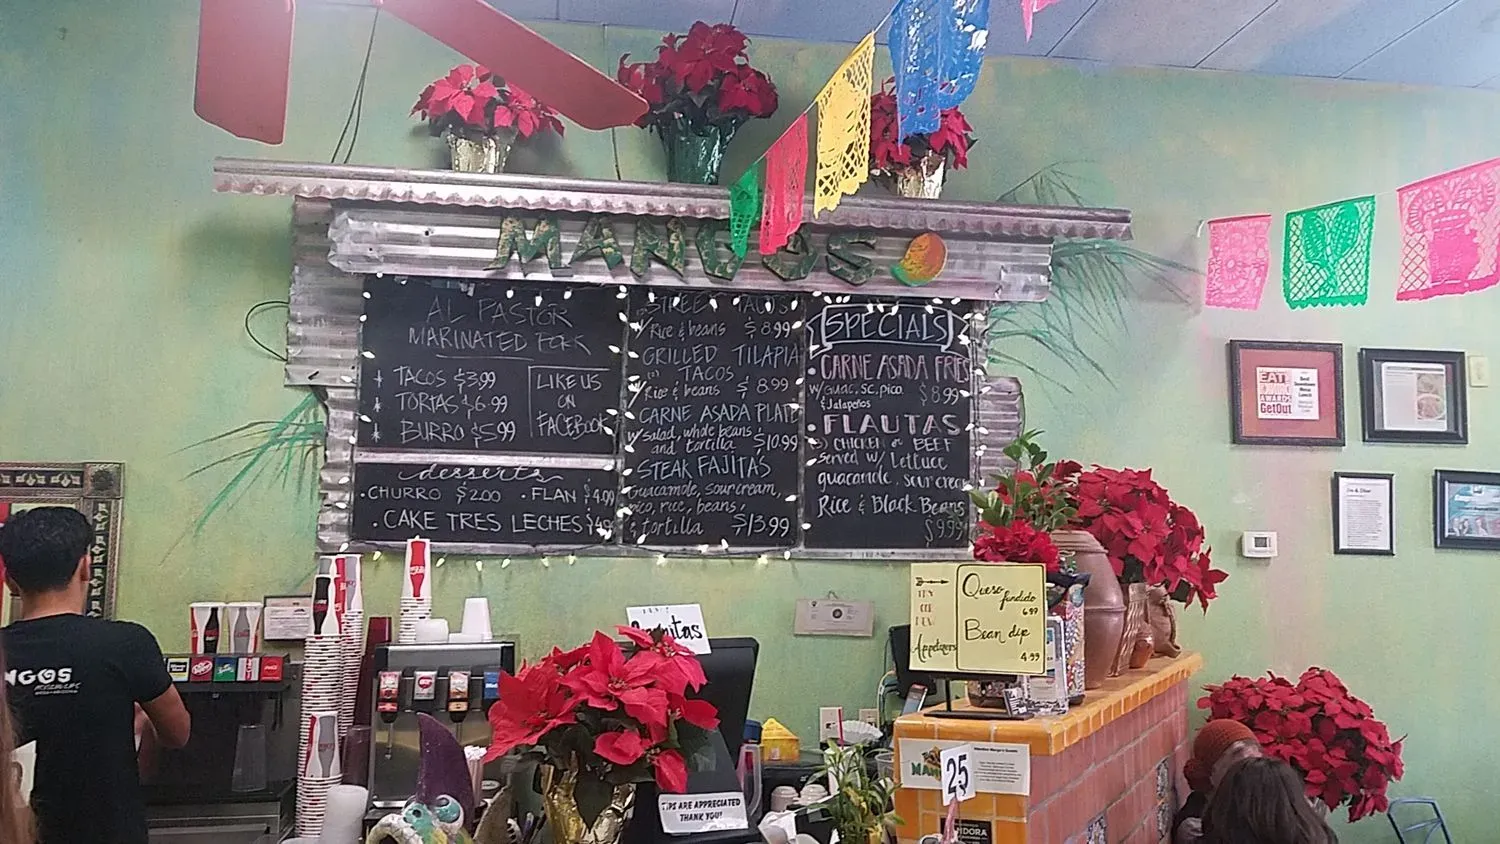 MANGOS
AL PASTOR
MARINATED PORK
* TACOS $3.99
* TORTAS $6.99
* BURRO $5.99
LIKE US
ON
FACEBOOK
desserts
• CHURRO $2.00 • FLAN $4.99
• CAKE TRES LECHES
STREET TACOS
w/ Rice & beans $8.99
GRILLED TILAPIA
TACOS
Rice & beans $8.99
CARNE ASADA PLATE
w/ salad, whole beans
and tortilla $10.99
STEAK FAJITAS
Guacamole, sour cream,
pico, rice, beans,
& tortilla $13.99
SPECIALS
• CARNE ASADA FRIES
w/ guac, sc, pico, $8.99
& Jalapeños
• FLAUTAS
CHICKEN or BEEF
served w/ Lettuce
guacamole, sour crea
Rice & Black Beans
$9.99
TRY
OUR
NEW
Appetizers
Queso
fundido
6.99
Bean dip
4.99
TIPS ARE APPRECIATED
THANK YOU!
25
NGOS
EAT
AWARDS
GetOut